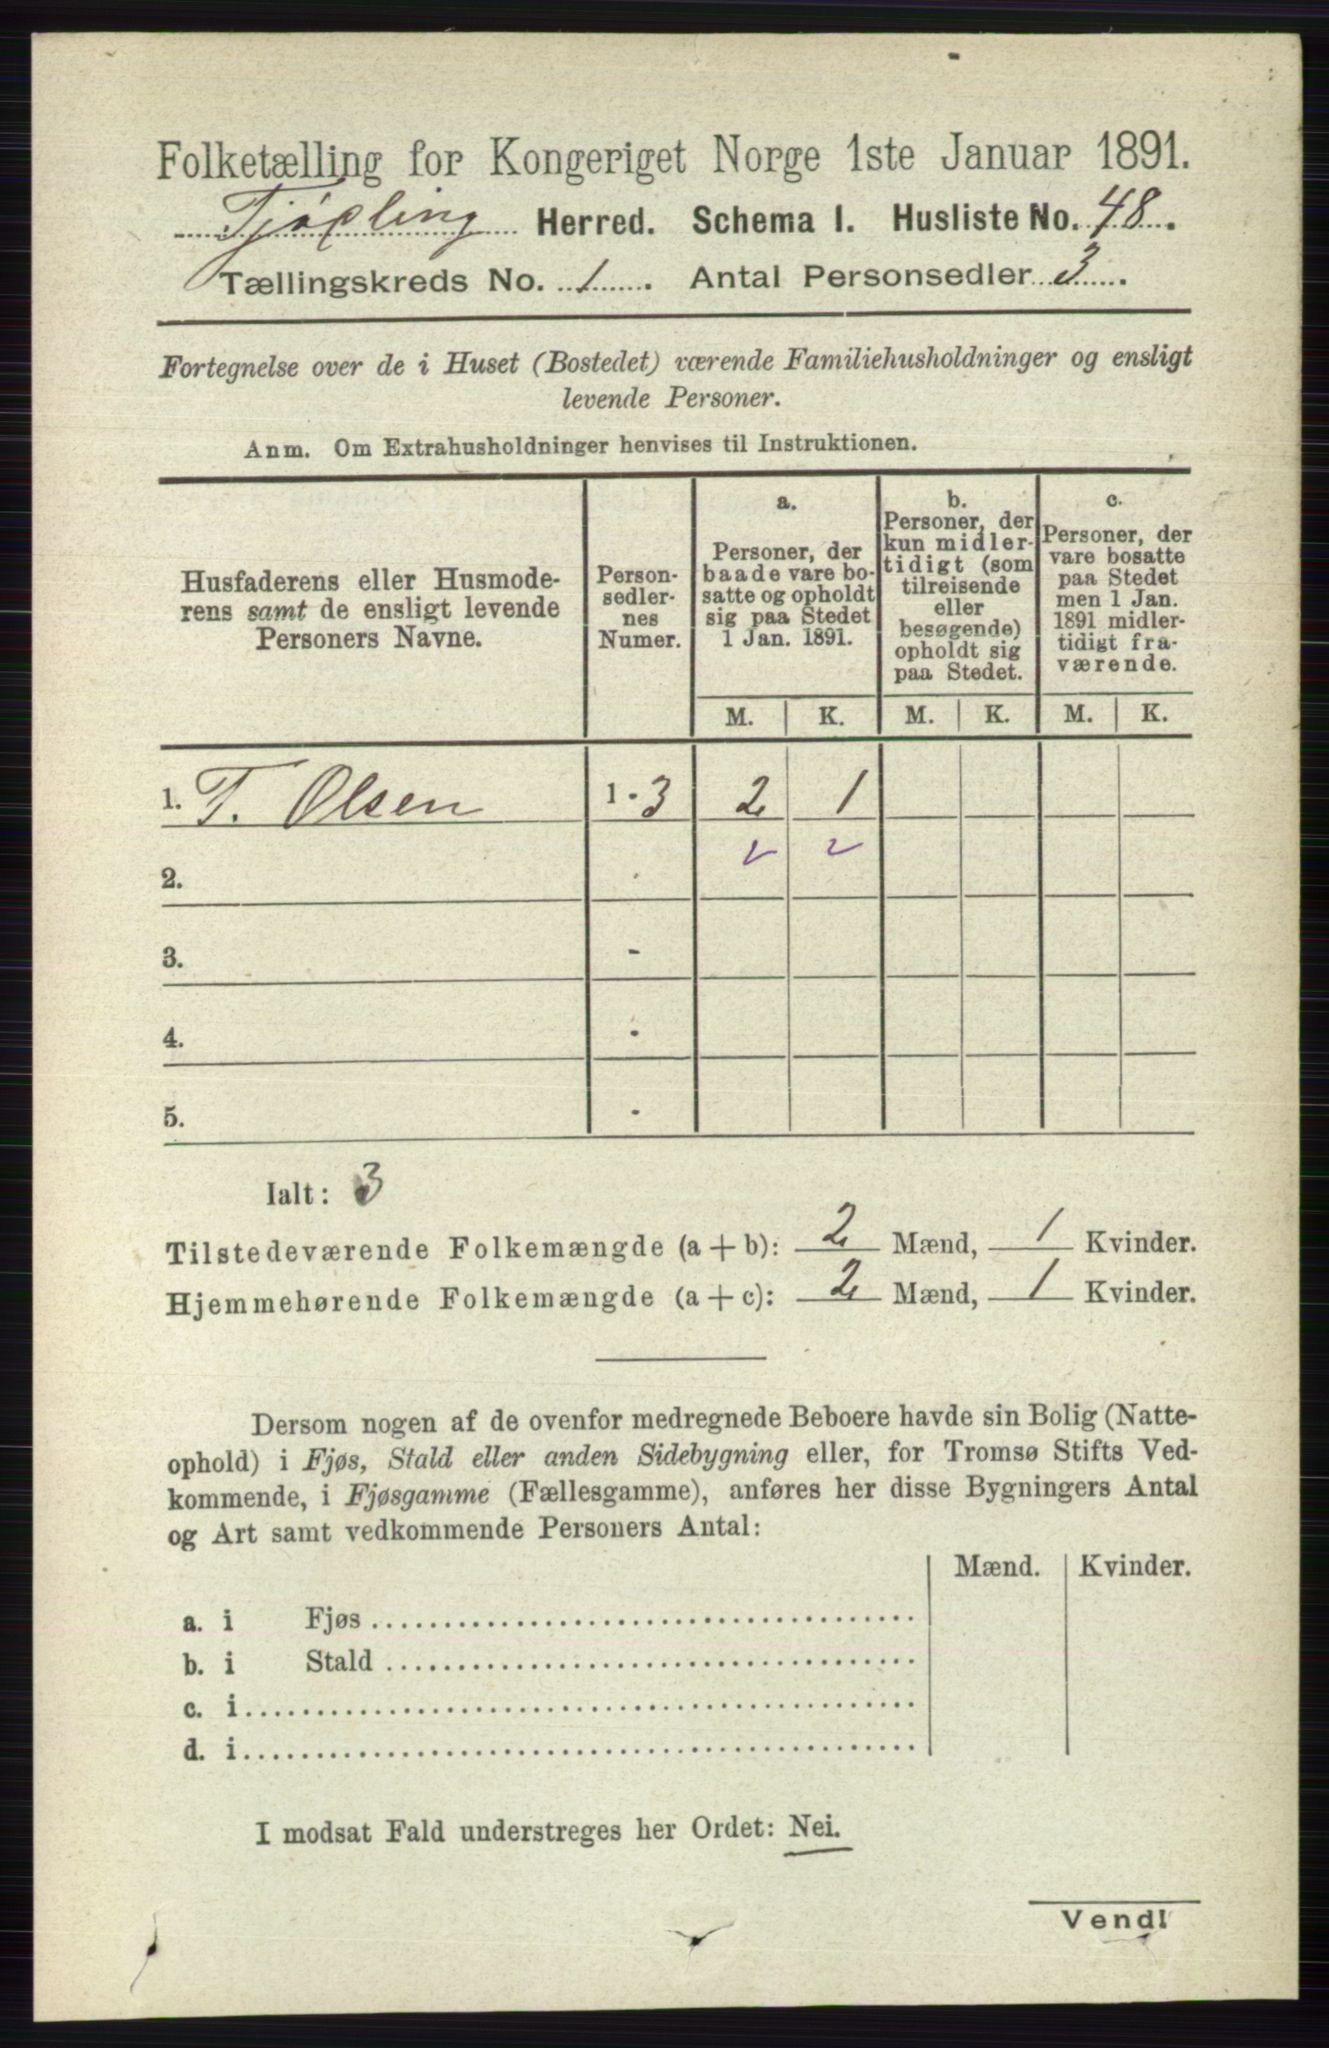 Folketælling for Kongeriget Norge 1ste Januar 1891.
Tjøling Herred. Schema I. Husliste No. 48.
Tællingskreds No. 1. Antal Personsedler 3.
Fortegnelse over de i Huset (Bostedet) værende Familiehusholdninger og ensligt
levende Personer.
Anm. Om Extrahusholdninger henvises til Instruktionen.
Husfaderens eller Husmode-
rens samt de ensligt levende
Personers Navne.
Person-
sedler-
nes
Numer.
a.
Personer, der
baade vare bo-
satte og opholdt
sig paa Stedet
1 Jan. 1891.
b.
Personer, der
kun midler-
tidigt (som
tilreisende
eller
besøgende)
opholdt sig
paa Stedet.
c.
Personer, der
vare bosatte
paa Stedet
men 1 Jan.
1891 midler-
tidigt fra-
værende.
M. K. M. K. M. K.
1. T. Olsen 1-3 2 1
2.
3. -
4. -
5. -
Ialt: 3
Tilstedeværende Folkemængde (a + b): 2 Mænd, 1 Kvinder.
Hjemmehørende Folkemængde (a + c): 2 Mænd, 1 Kvinder.
Dersom nogen af de ovenfor medregnede Beboere havde sin Bolig (Natte-
ophold) i Fjøs, Stald eller anden Sidebygning eller, for Tromsø Stifts Ved-
kommende, i Fjøsgamme (Fællesgamme), anføres her disse Bygningers Antal
og Art samt vedkommende Personers Antal:
Mænd. Kvinder.
a. i Fjøs
b. i Stald
c. i
d. i
I modsat Fald understreges her Ordet: Nei.
Vend!